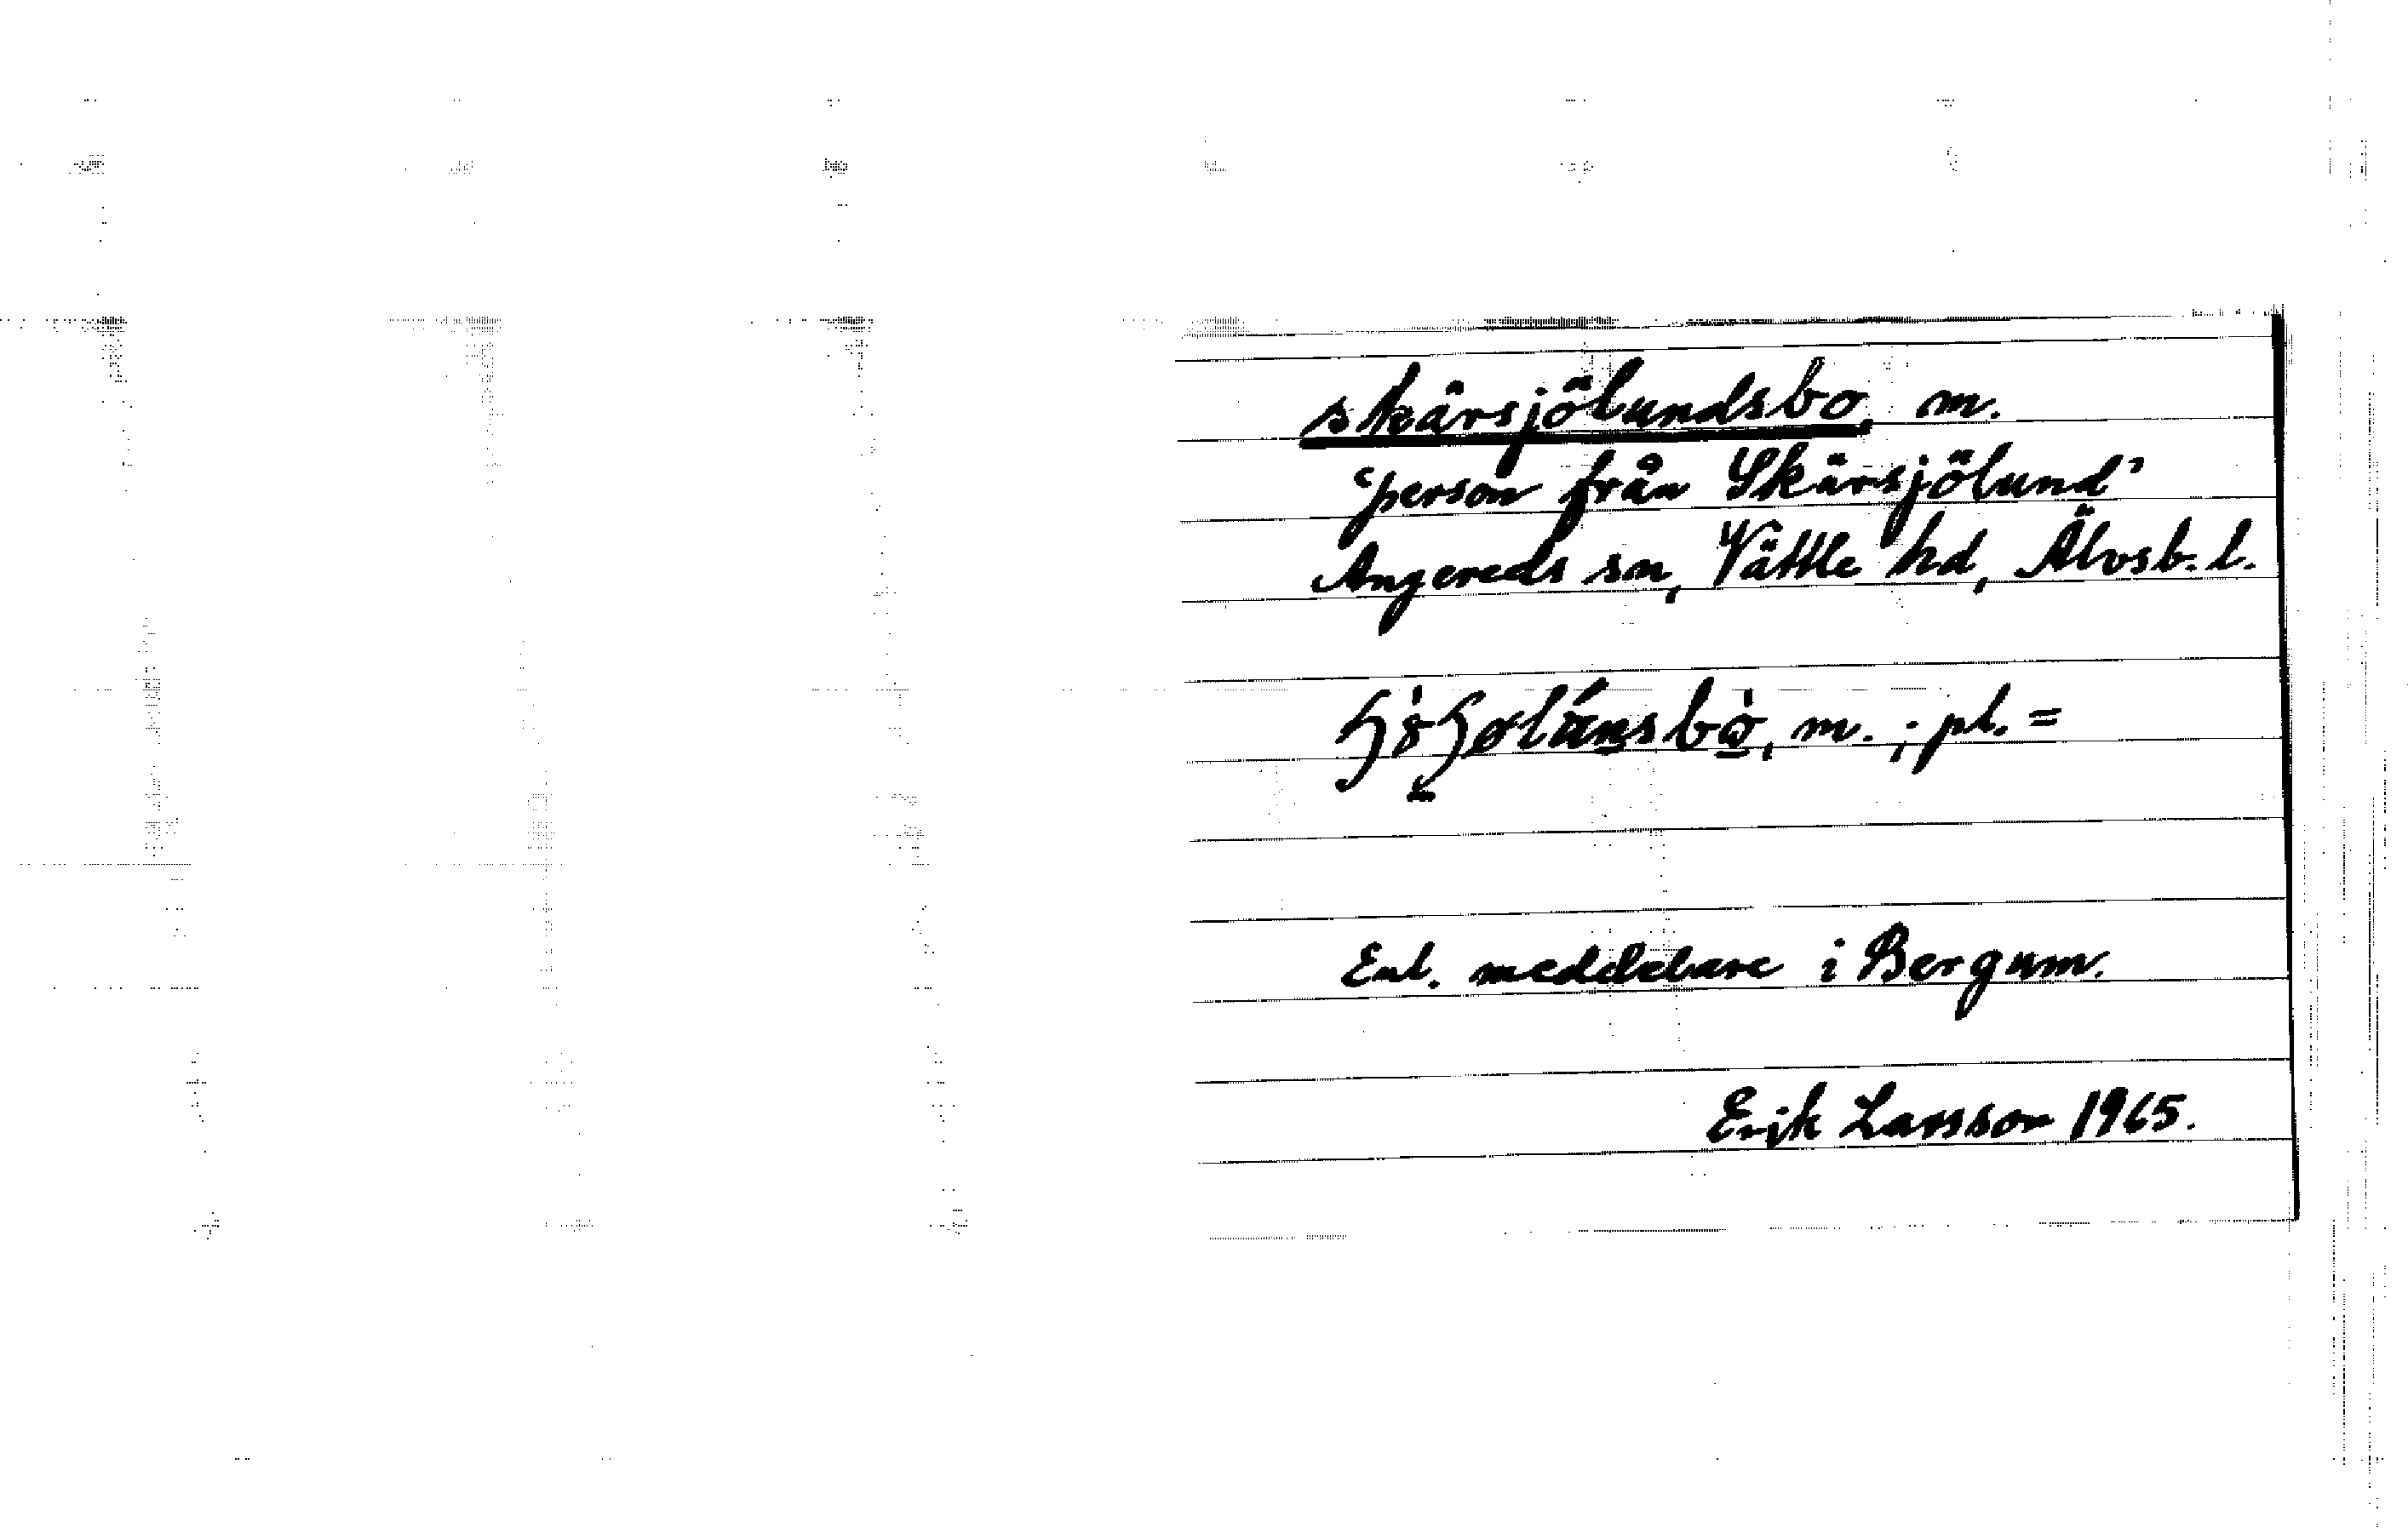 skärsjölundsbo, m.
'person från Skärsjölund'
Angereds sn, Vättle hd, Älvsb. l.
m. ; pl. =
Enl. meddelare i Bergum.
Erik Larsson 1965.